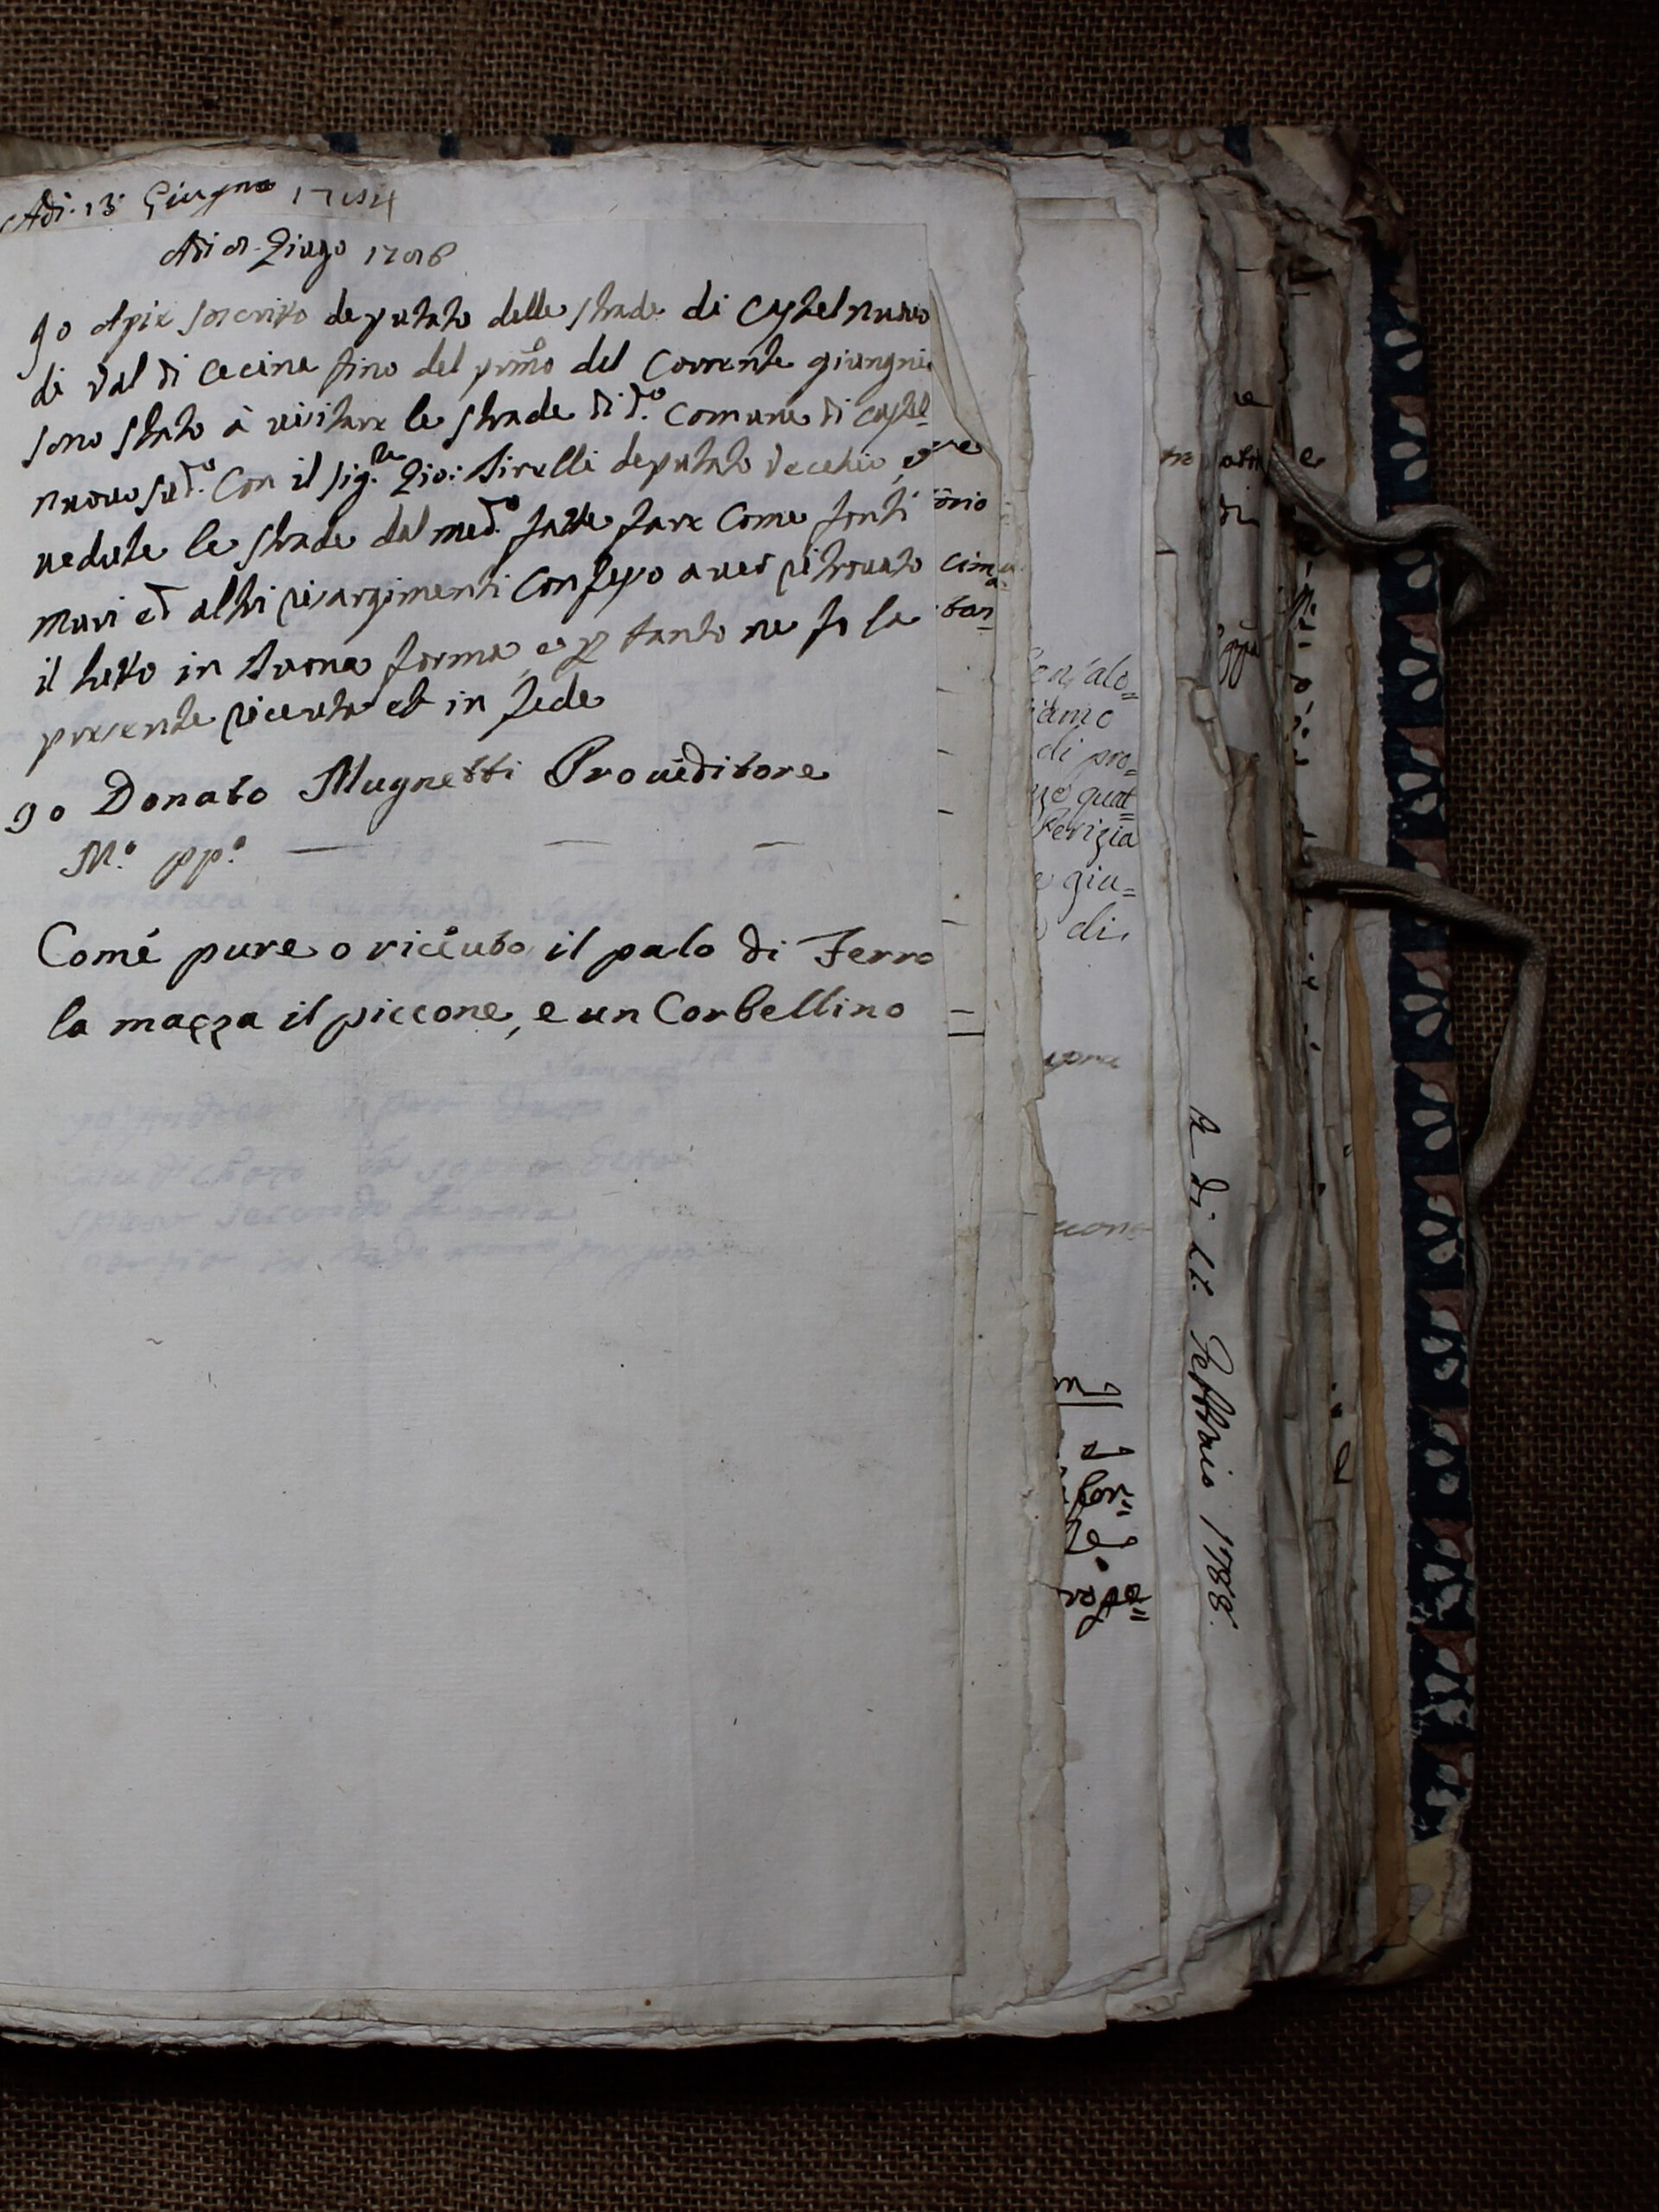 Adi 13 Giugno
Adi Giugo
Io Apie soscritto deputato delle strade di Castelnuovo
di Val di Cecina fino del primo del Corrente giungnio
sono stato à visitare le strade di d.o Comune di Castel=
nuovo sud.o Con il sig.re Gio: deputato vecchio, e
vedute le strade dal med.o fatte fare Come fonti
muri ed altri risargimenti Confesso aver ritrovato
il tutto in buona forma, e p tanto ne fo la
presente ricevuta et in fede
Io Donato Mugnetti Proveditore
M.o pp.o
Come pure o riceuto il palo di Ferro
la mazza il piccone, e un Corbellino
ório
cim
bar=
iamo
di pro=
quat=
Perizia
giu=
di
A di Febbraio 1788.